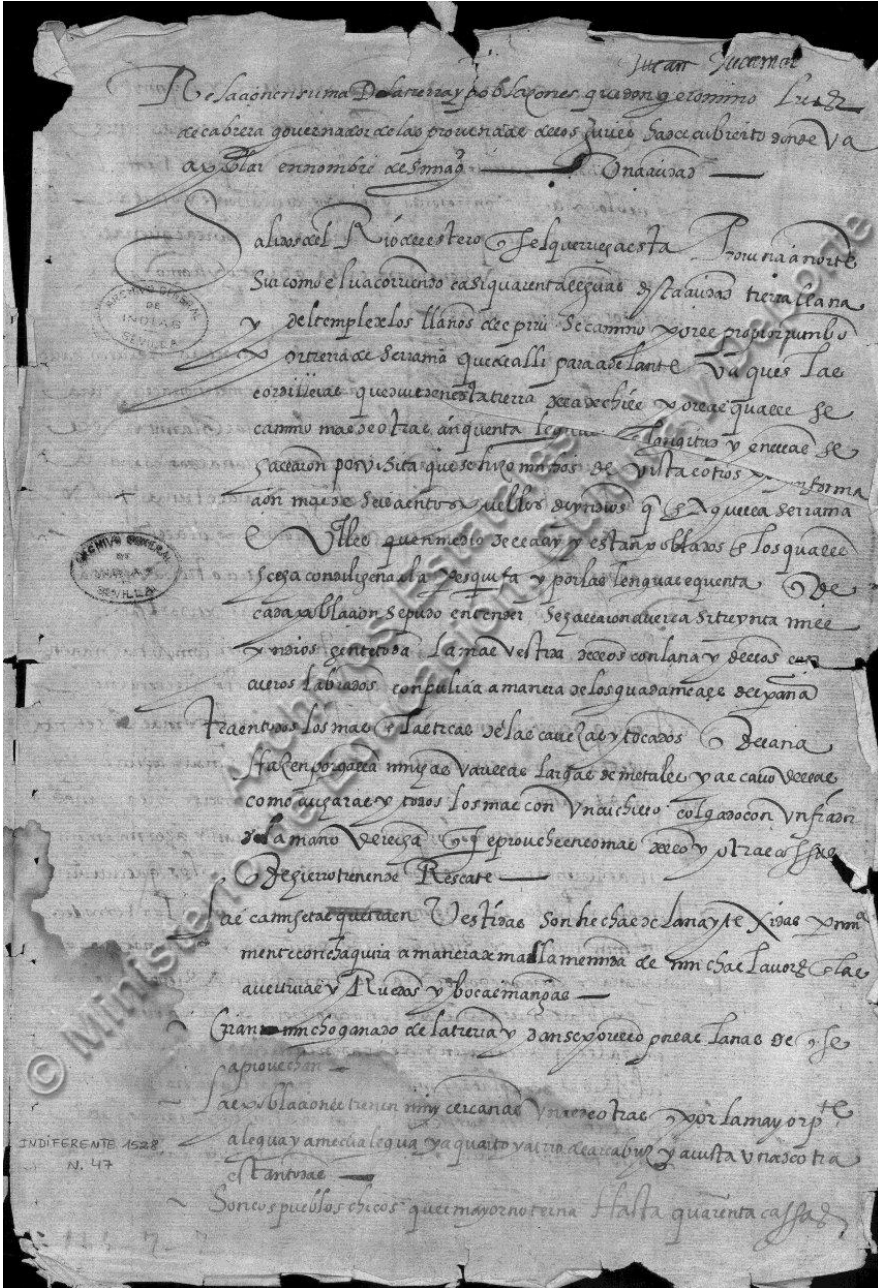 Relacion en suma De la tierra y poblazones que don geronimo luis
de cabrera governador de las provincias de los juries ha descubierto donde va
a poblar en nombre de su mag. Una ciudad
Salidos del Rio del estero que es el que riega esta Provincia a norte
Sur como el va corriendo casi quarenta leguas desta ciudad tierra llana
y del temple de los llanos del piru se camino por el propio rumbo
por tierra de serrania que de alli para adelante va que es las
cordilleras que en esta tierra de chile por las quales se
camino mas de otras cinquenta leguas longitud y en ellas se
hallaron por visita que se hizo de vista de otros por informa
cion mas de seiscientos pueblos de yndios que en aquella serrania
e Valles que en medio de ella ay estan poblados en los quales
se con diligencia la pesquisa y por las lenguas e quenta que de
cada poblacion se pudo entender se hallaron aver casi treynta mill
yndios gente toda la mas vestida dellos con lana y dellos con
cueros labrados con pulicia a manera de los guadameçis de españa
traen todos los mas en las tocas de las cabezas y tocados que de lana
hazen por gala muchas varillas largas de metales y al cavo dellas
como cucharas y todos los mas con un cuchillo colgado con un fiador
de la mano derecha que se proveen lo mas dello y otras cossas
que de hierro tienen de Rescate
Las camisetas que traen Vestidas son hechas de lana y texidas prima
mente con chaquira a manera de malla menuda de muchas lavores en las
averturas y Ruedos y bocas mangas
Crian mucho ganado de la tierra y danse por ello por las lanas de que se
aprovechan
Las poblaciones tienen muy cercanas unas de otras que por la mayor pte
a legua y a media legua y a quarto y a tiro de arcabuz y a vista una de otra
estan todas
Son los pueblos chicos que el mayor no terna Hasta quarenta cassas
ARCHIVO GENERAL
DE
INDIAS
SEVILLA
ARCHIVO GENERAL
DE
INDIAS
SEVILLA
INDIFERENTE 1528,
N. 47
© Ministerio de Educación, Cultura y Deporte
Archivos Estatales